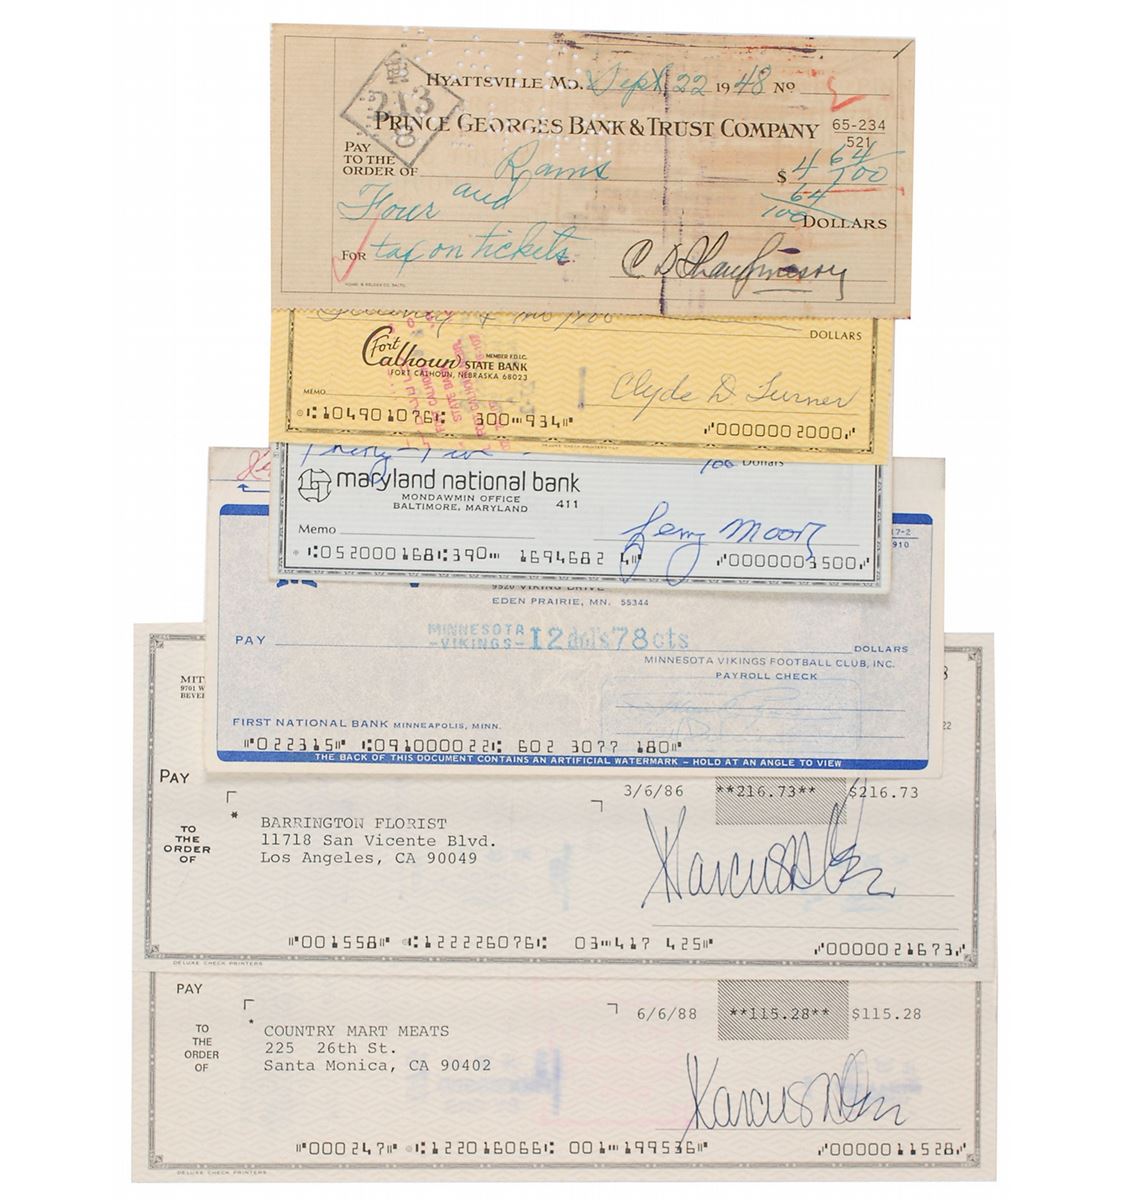 HYATTSVILLE MD. Sept 22 1948 No
PRINCE GEORGES BANK & TRUST COMPANY 65-234
521
213
8
PAY
TO THE
ORDER OF Rams $4 64/100
Four and 64/100 DOLLARS
FOR tax on tickets. C D Shaughnessy
DOLLARS
Fort
Calhoun STATE BANK
MEMBER F.D.I.C.
FORT CALHOUN, NEBRASKA 68023
MEMO Clyde D Turner
⑆104901076⑆ 300⑉934⑈ ⑇0000002000⑇
100 Dollars
maryland national bank
MONDAWMIN OFFICE
BALTIMORE, MARYLAND 411
Memo Lenny Moore
⑆052000168⑆390⑉ 1694682 4⑈ ⑇0000003500⑇
17-2
910
9520 VIKING DRIVE
EDEN PRAIRIE, MN. 55344
PAY MINNESOTA
-VIKINGS- 12 dol's 78 cts DOLLARS
MINNESOTA VIKINGS FOOTBALL CLUB, INC.
PAYROLL CHECK
FIRST NATIONAL BANK MINNEAPOLIS, MINN.
⑈022315⑈ ⑆091000022⑆ 602 3077 180⑈
THE BACK OF THIS DOCUMENT CONTAINS AN ARTIFICIAL WATERMARK – HOLD AT AN ANGLE TO VIEW
MIT
9701 W
BEVER
22
PAY
3/6/86 **216.73** $216.73
TO
THE
ORDER
OF
* BARRINGTON FLORIST
11718 San Vicente Blvd.
Los Angeles, CA 90049
Marcus Allen
⑈001558⑈ ⑆122226076⑆ 03⑉417 425⑈ ⑇0000021673⑇
DELUXE CHECK PRINTERS
PAY
6/6/88 **115.28** $115.28
TO
THE
ORDER
OF
* COUNTRY MART MEATS
225 26th St.
Santa Monica, CA 90402
Marcus Allen
⑈000247⑈ ⑆122016066⑆ 001⑉199536⑈ ⑇0000011528⑇
DELUXE CHECK PRINTERS